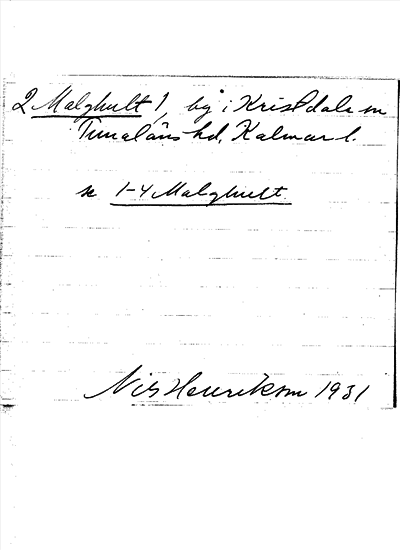 2 Malghult 1, by i Kristdala sn
Tunaläns hd, Kalmar l.
se 1-4 Malghult.
Nils Henriksson 1931